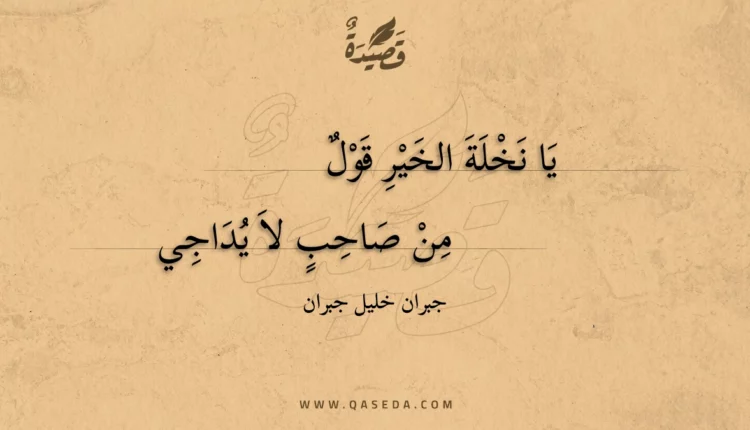 قَصِيدَةٌ
يَا نَخْلَةَ الخَيْرِ قَوْلٌ
مِنْ صَاحِبٍ لاَ يُدَاجِي
جبران خليل جبران
WWW.QASEDA.COM